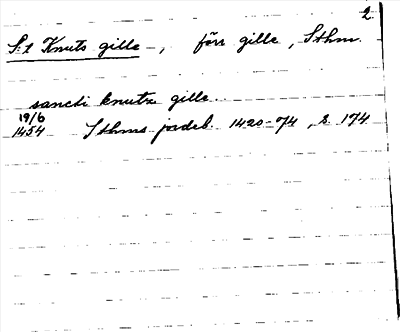 2.
S:t Knuts gille, förr gille, Sthm.
sancti knutz gille..
19/6
1454 Sthms jordeb. 1420-74, s. 174